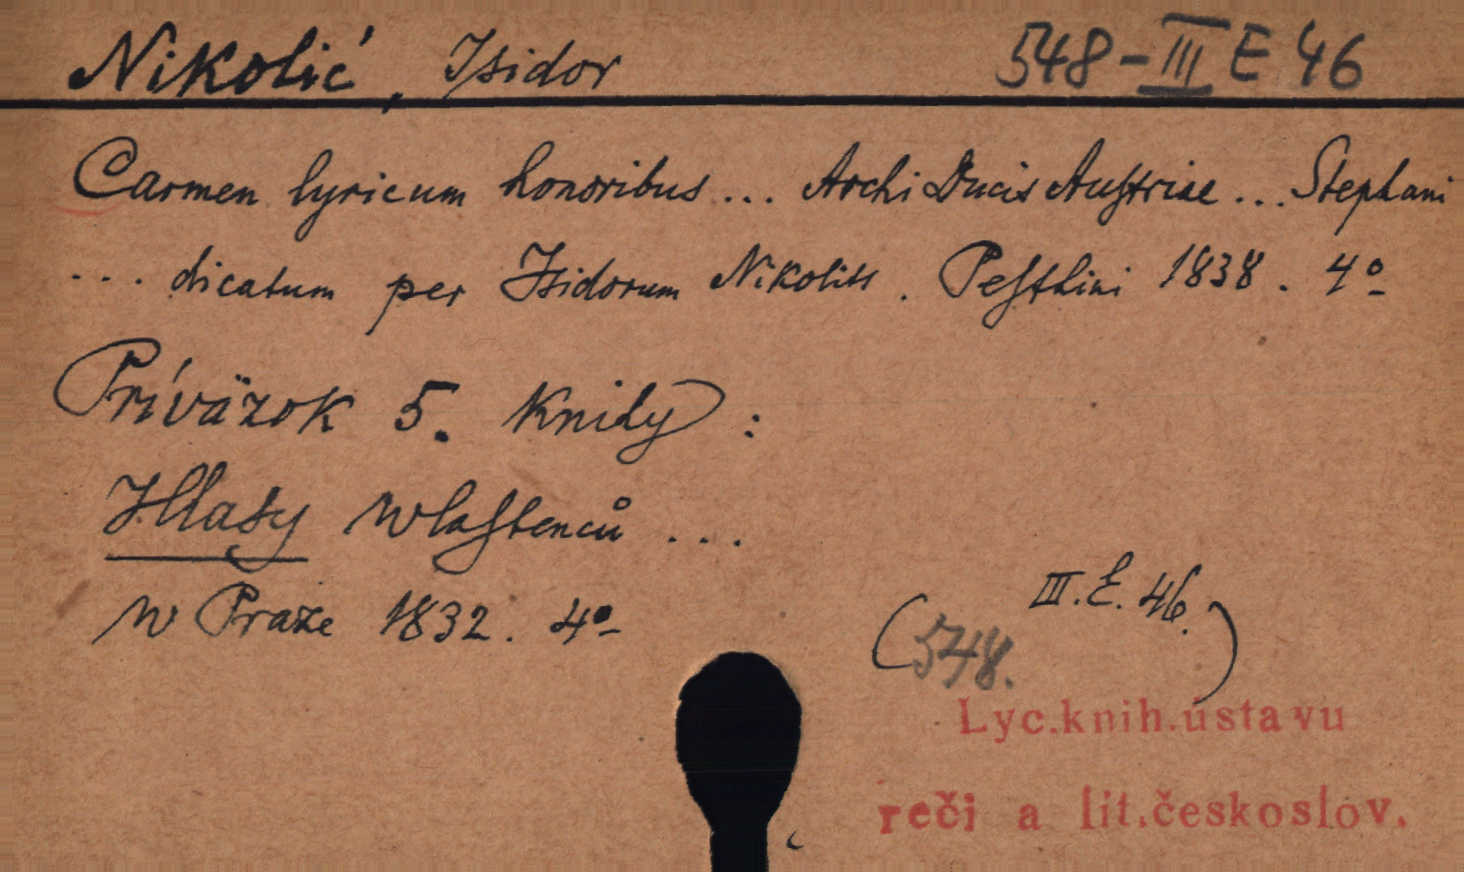 Nikolić, Isidor 548-III E 46
Carmen lyricum honoribus ... ArchiDucis Auſtriae ... Stephani
... dicatum per Isidorum Nikolits. Peſthini 1838. 4º
Prívӓzok 5. knihy:
Hlasy wlaſtenců ...
w Praze 1832. 4º
(548. III. E. 46.)
Lyc.knih.ústavu
reči a lit.českoslov.